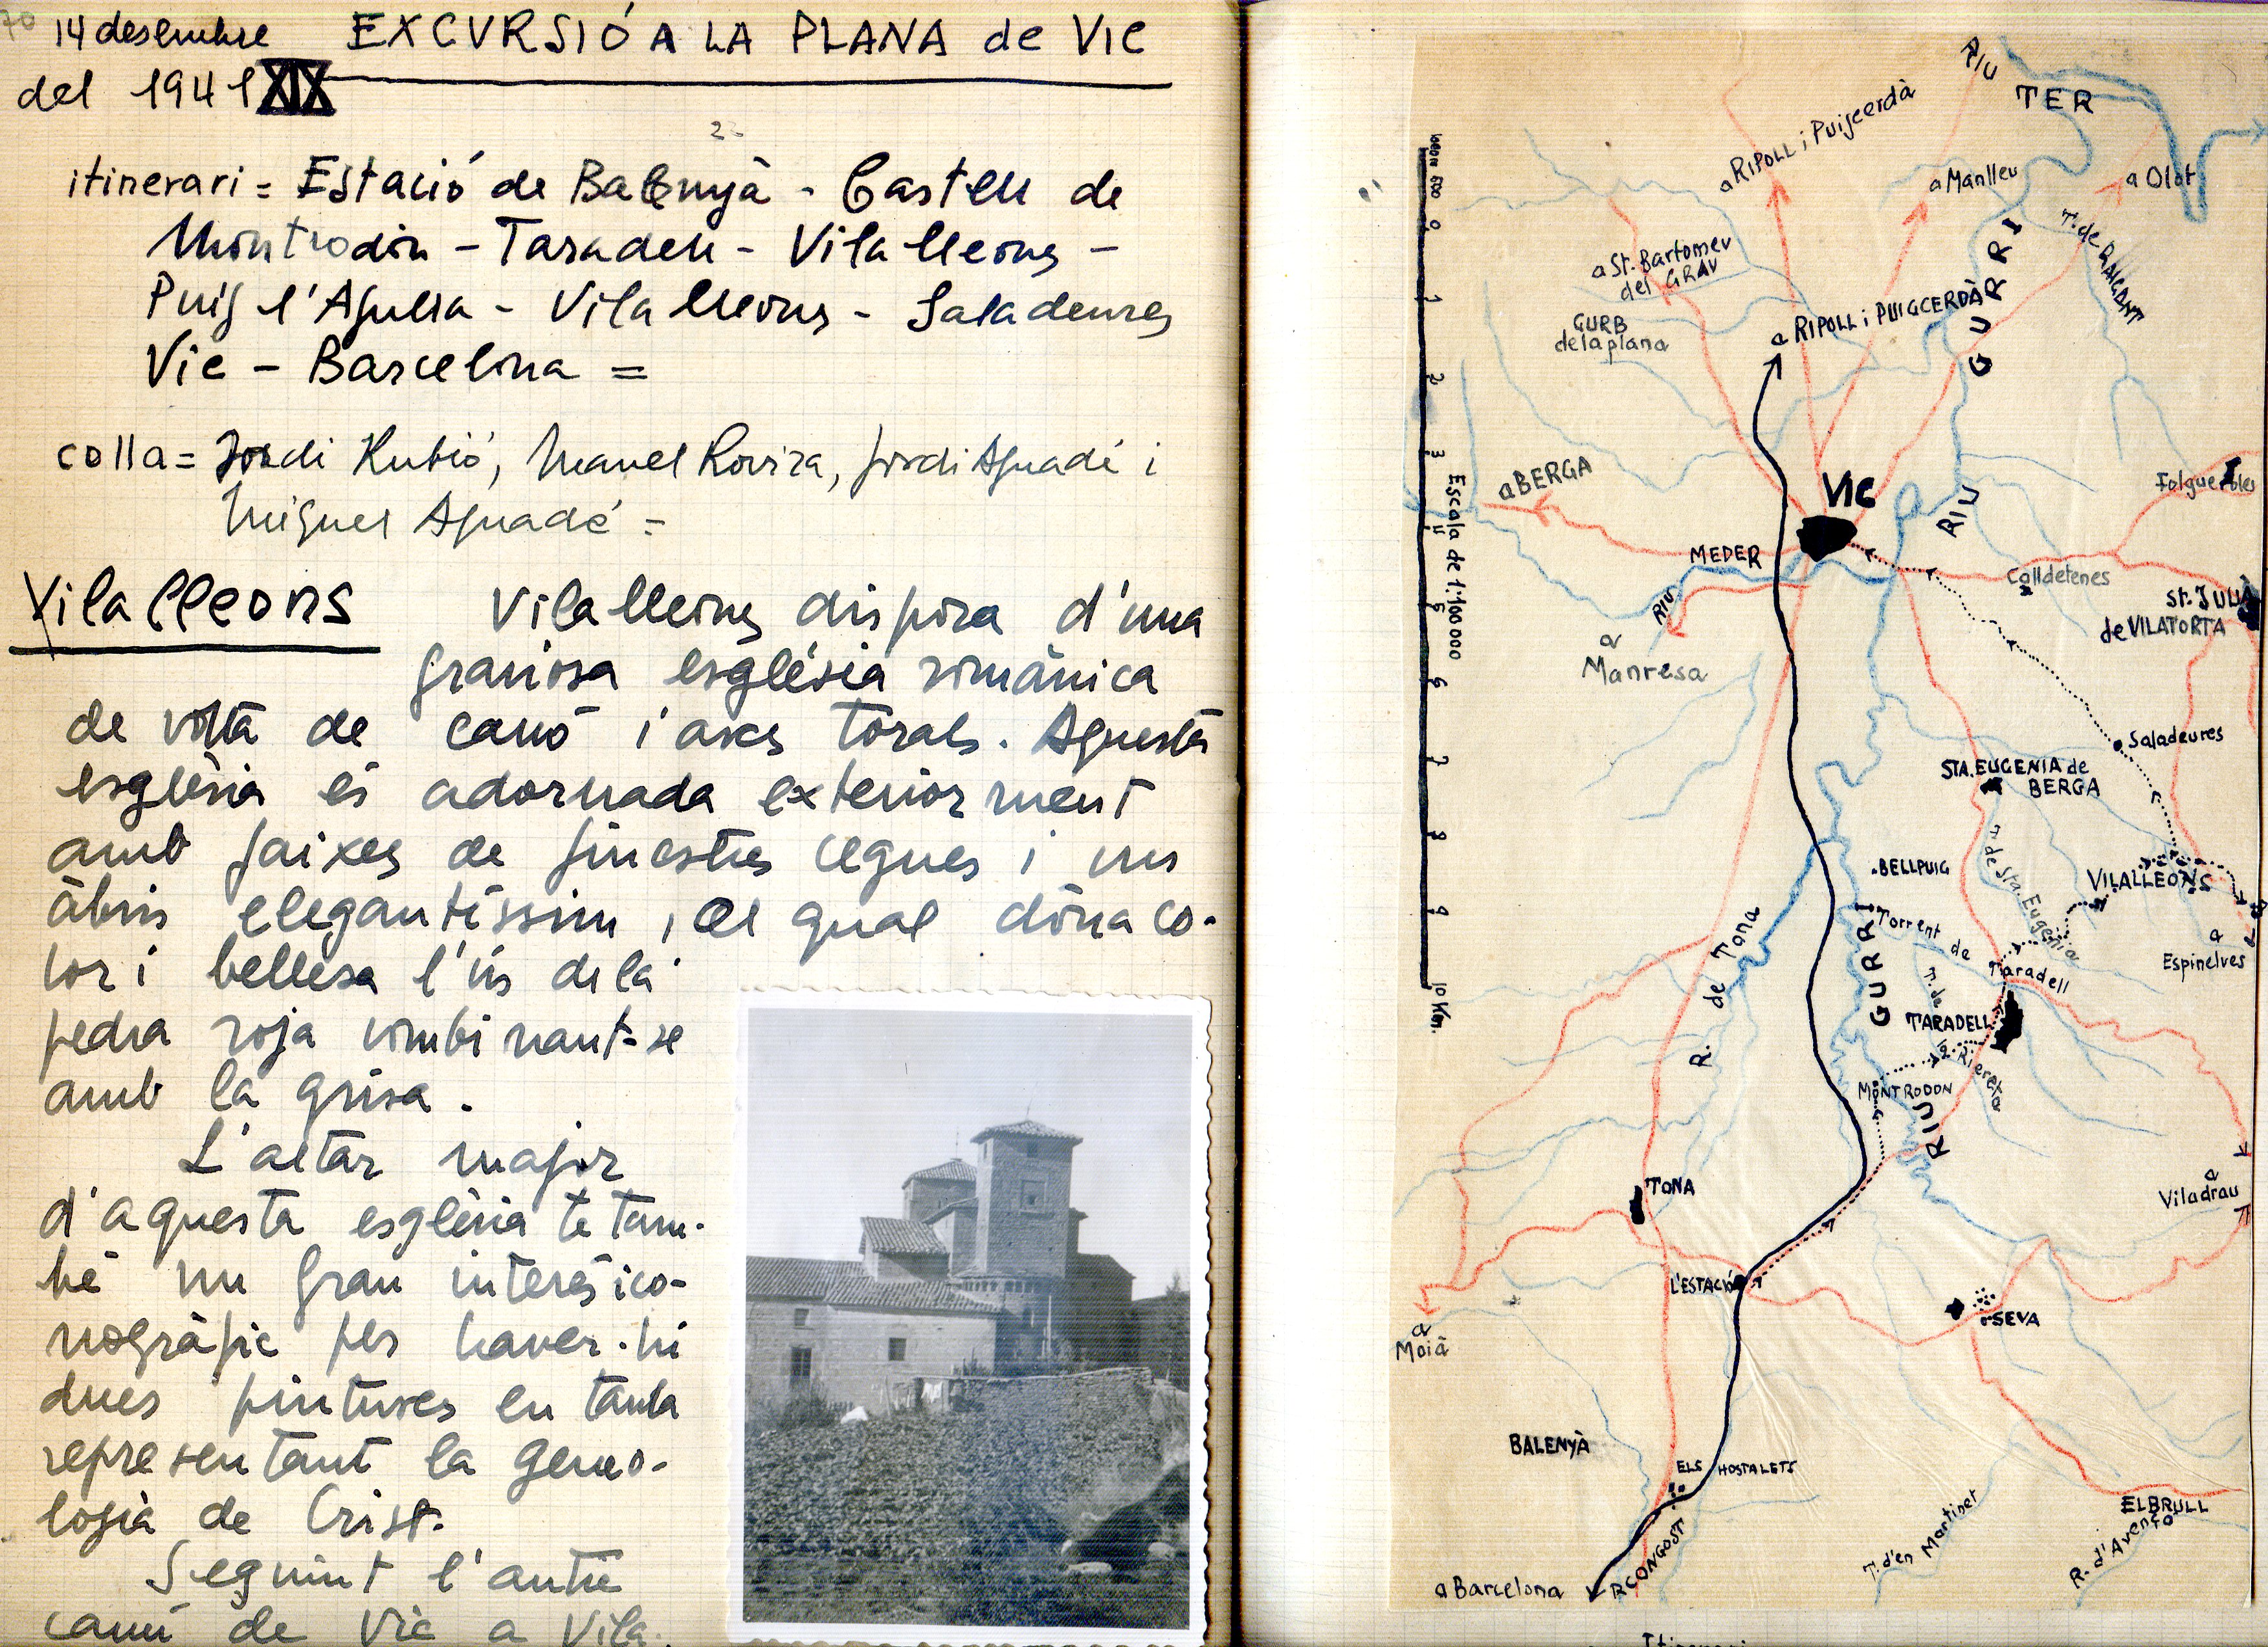 70
14 desembre EXCVRSIÓ A LA PLANA de VIC
del 1941 XIX
itinerari = Estació de Balenyà - Castell de
Montrodon - Taradell - Vilalleons -
Puig l'Agulla - Vilalleons - Saladeures
Vic - Barcelona =
colla = Jordi Rubió, Manel Rovira, Jordi Aguadé i
Miquel Aguadé =
Vilalleons
Vilalleons disposa d'una
graciosa església romànica
de volta de canó i arcs torals. Aquesta
esglèsia és adornada exteriorment
amb faixes de finestres cegues i un
àbsis elegantíssim, el qual dóna co-
lor i bellesa l'ús de la
pedra roja combinant-se
amb la grisa.
L'altar major
d'aquesta esglèsia té tam-
bé un gran interès ico-
nogràfic per haver-hi
dues pintures en taula
representant la geneo-
logia de Crist.
Seguint l'antic
camí de Vic a Vila-
RIU
TER
a RIPOLL i Puigcerdà
a Manlleu
a Olot
T. de RAIGANT
a St. Bartomeu
del GRAV
GURB
de la plana
a RIPOLL i PUIGCERDÀ
GURRI
RIU
1000 m 500 0 1 2 3 4 5 6 7 8 9 10 Km.
Escala de 1:100 000
a BERGA
VIC
Folgueroles
MEDER
RIU
Calldetenes
St. JULIÀ
de VILATORTA
a
Manresa
Saladeures
STA. EUGENIA de
BERGA
T. de Sta. Eugenia
BELLPUIG
VILALLEONS
Torrent de Taradell
a
Espinelves
R. de Tona
GURRI
T. de la Riereta
TARADELL
MONTRODON
RIU
TONA
a
Viladrau
L'ESTACIÓ
SEVA
a
Moià
BALENYÀ
ELS HOSTALETS
EL BRULL
T. d'en Martinet
R. d'Avençó
R CONGOST
a Barcelona
Itinerari